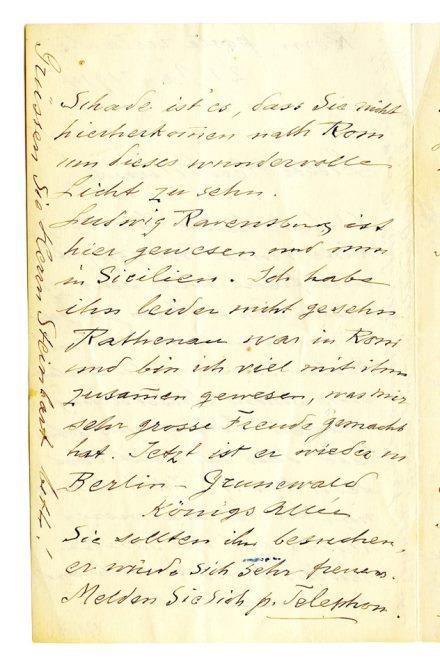 Schade ist es, dass Sie nicht
hierherkom̄en nach Rom
um dieses wundervolle
Licht zu sehn.
Ludwig Ravensburg ist
hier gewesen und nun
in Sicilien. Ich habe
ihn leider nicht gesehn
Rathenau war in Rom
und bin ich viel mit ihm
zusam̄en gewesen, was mir
sehr grosse Freude gemacht
hat. Jetzt ist er wieder in
Berlin - Grunewald
Königs Allée
Sie sollten ihn besuchen,
er würde sich sehr freuen.
Melden Sie Sich p. Telephon.
Grüssen Sie Herrn Steinhart